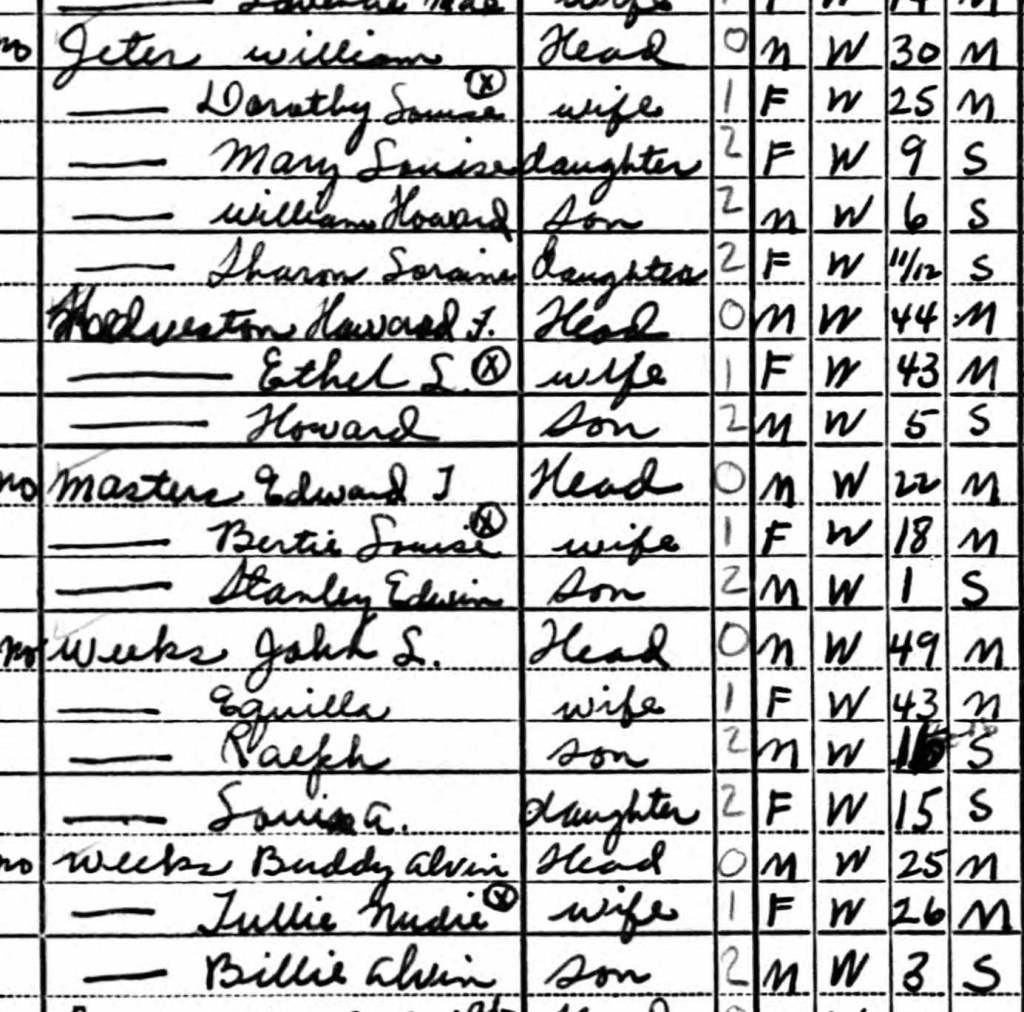 wife F W M
no Jeter William Head 0 M W 30 M
—— Dorothy Louise Ⓧ wife 1 F W 25 M
—— Mary Louise daughter 2 F W 9 S
—— William Howard son 2 M W 6 S
—— Sharon Loraine daughter 2 F W 11/12 S
Howard F. Head 0 M W 44 M
—— Ethel L. Ⓧ wife 1 F W 43 M
—— Howard son 2 M W 5 S
no Masters Edward T Head 0 M W 22 M
—— Bertie Louise Ⓧ wife 1 F W 18 M
—— Stanley Edwin son 2 M W 1 S
no Weeks John L. Head 0 M W 49 M
—— Equilla wife 1 F W 43 M
—— Ralph son 2 M W S
—— A. daughter 2 F W 15 S
no Weeks Buddy Alvin Head 0 M W 25 M
—— Tullie Nudie Ⓧ wife 1 F W 26 M
—— Billie Alvin son 2 M W 3 S